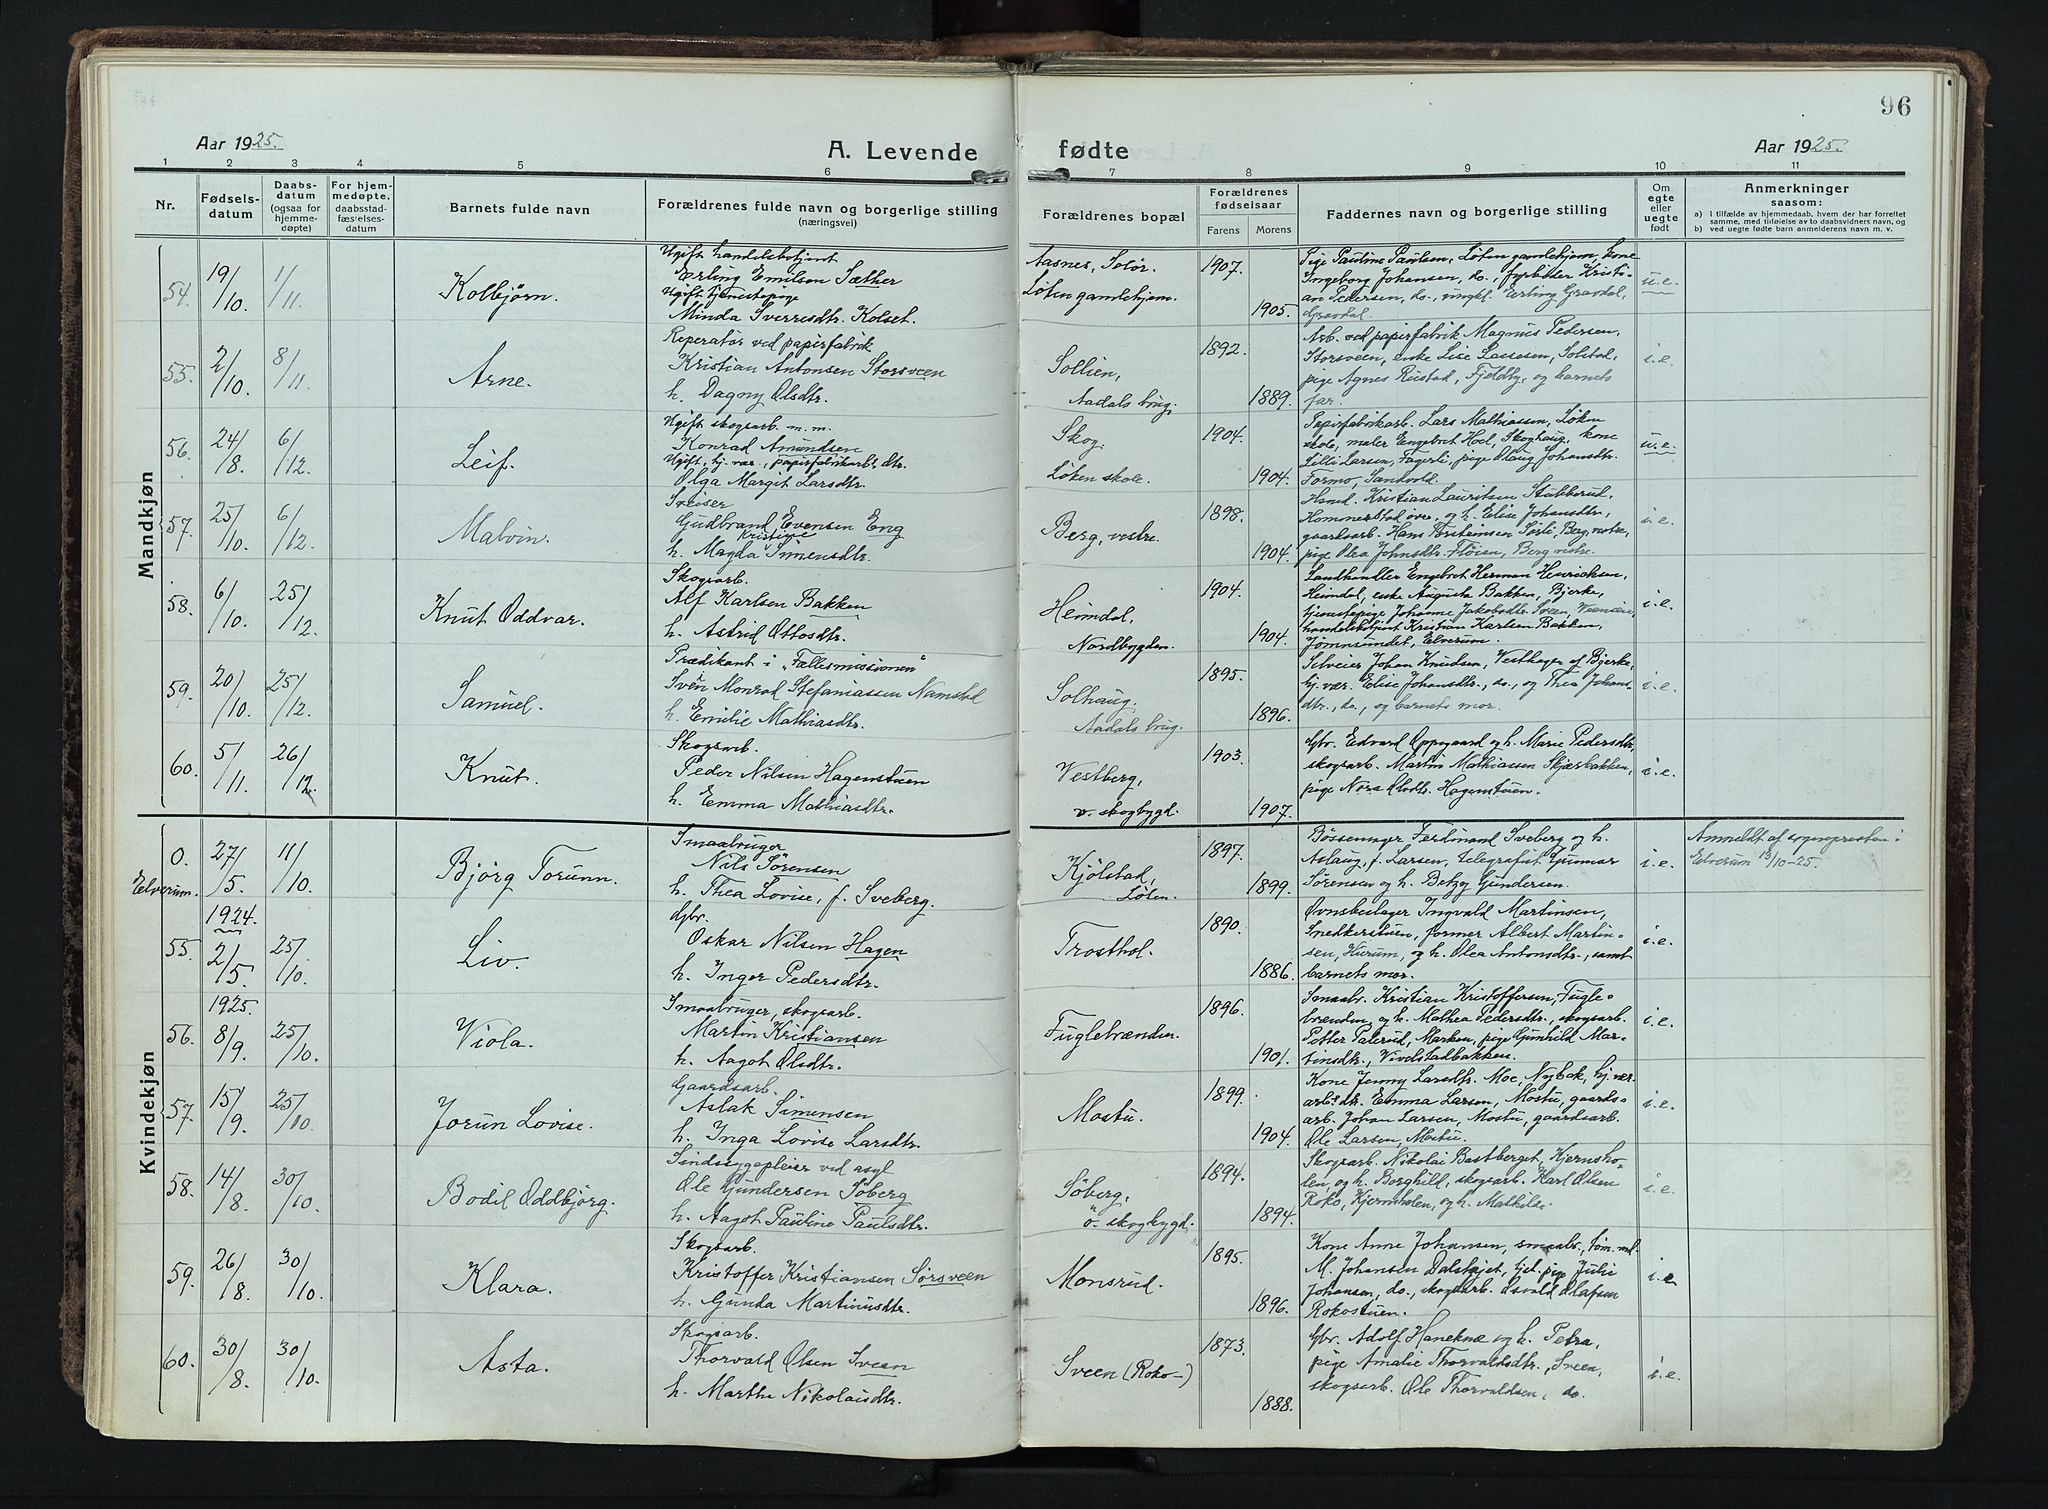 96
Aar 1925.
A. Levende fødte
Aar 1925.
1 2 3 4 5 6 7 8 9 10 11
Nr.
Fødselsdatum
Daabsdatum (ogsaa for hjemmedøpte)
For hjemmedøpte, daabsstadfæstelsesdatum
Barnets fulde navn
Forældrenes fulde navn og borgerlige stilling
(næringsvei)
Forældrenes bopæl
Forældrenes fødselsaar
Farens Morens
Faddernes navn og borgerlige stilling
Om egte eller uegte født
Anmerkninger
saasom:
a) i tilfælde av hjemmedaab, hvem der har forrettet
samme, med tilføielse av to daabsvidners navn, og
b) ved uegte fødte barn anmelderens navn m. v.
Mandkjøn
54. 19/10. 1/11. Kolbjørn.
Ugift handelsbetjent
Erling Emilsen Sæther
Ugift tjenestepige
Minda Sverresdtr. Kolset.
Aasnes, Solør.
Løten gamlehjem.
1907.
1905.
Pige Pauline Paulsen, Løten gamlehjem, kone
Ingeborg Johansen, do., fyrbøter Kristi-
an Pedersen, do., ungkl. Erling Gravdal,
Gravdal.
u.e.
55. 2/10. 8/11. Arne.
Reperatør ved papirfabrik
Kristian Antonsen Storsveen
h. Dagny Olsdtr.
Sollien,
Aadals brug.
1892.
1889.
Arb. ved papirfabrik Magnus Pedersen,
Storsveen, enke Lise Lassesen, Solstad,
pige Agnes Rustad, Fjeldby, og barnets
far.
i.e.
56. 24/8. 6/12. Leif.
Ugift skogsarb. m. m.
Konrad Amundsen
Ugift, hj. vær., papirfabrikarb.s dtr.
Olga Margit Larsdtr.
Skog.
Løken skole.
1904.
1904.
Papirfabrikarb. Lars Mathiassen, Løken
skole, maler Engebret Hoel, Skoghaug, kone
Lilli Larsen, Fagerli, pige Olaug Johansdtr.
Formo, Sandvold.
u.e.
57. 25/10. 6/12. Malvin.
Sveiser
Gudbrand Evensen Eng
Kristine
h. Magda Simensdtr.
Berg, vestre.
1898.
1904.
Hsmd. Kristian Lauritsen Stubberud,
Hommerstad øvre, og h. Elise Johansdtr.,
gaardsarb. Hans Torsteinsen Sørli, Berg, vestre,
pige Olea Johnsdtr. Fløien, Berg vestre.
i.e.
58. 6/10. 25/12. Knut Oddvar.
Skogsarb.
Alf Karlsen Bakken
h. Astrid Ottosdtr.
Heimdal,
Nordbygden.
1904.
1904.
Landhandler Engebret Herman Henriksen,
Heimdal, enke Augusta Bakken, Bjerke,
tjenestepige Johanne Jakobsdtr. Sveen,
handelsbetjent Kristian Karlsen Bakken,
Jømnsundet, Elverum.
i.e.
59. 20/10. 25/12. Samuel.
Prædikant i „Fællesmissionen"
Svên Monrad Stefaniassen Namstad
h. Emilie Mathiasdtr.
Solhaug,
Aadals brug.
1895.
1896.
Selveier Johan Knudsen, Vesthagen af Bjerke,
hj. vær. Elise Johansdtr., do., og Thea Johans-
dtr., do., og barnets mor.
i.e.
60. 5/11. 26/12. Knut.
Skogsarb.
Peder Nilsen Hagenstuen
h. Emma Mathiasdtr.
Vestberg,
v. skogbygd.
1903.
1907.
Gbr. Edvard Oppegaard og h. Marie Pedersdtr.,
skogsarb. Martin Mathiassen Skjærbakken,
pige Nora Olsdtr. Hagenstuen.
i.e.
Kvindekjøn
0.
Elverum. 27/5. 11/10. Bjørg Torunn.
Smaabruger
Nils Sørensen
h. Thea Lovise, f. Sveberg.
Kjølstad,
Løten.
1897.
1899.
Bøssemager Ferdinand Sveberg og h.
Aslaug, f. Larsen, telegrafist Gunnar
Sørensen og h. Betzy Gundersen.
i.e.
Anmeldt af sognepresten i
Elverum 13/10-25.
1924.
55. 2/5. 25/10. Liv.
Gbr.
Oskar Nilsen Hagen
h. Inger Pedersdtr.
Trosthol.
1890.
1886.
Ovnsbeslager Ingvald Martinsen,
Snedkerstuen, former Albert Martin-
sen, Hurum, og h. Olea Antonsdtr., samt
barnets mor.
i.e.
1925.
56. 8/9. 25/10. Viola.
Smaabruger, skogsarb.
Martin Kristiansen
h. Aagot Olsdtr.
Fuglebrænden.
1896.
1901.
Smaabr. Kristian Kristoffersen, Fugle-
brænden, og h. Mathea Pedersdtr., skogsarb.
Petter Palerud, Marken, pige Gunhild Mar-
tinsdtr., Vivelstadbakken.
i.e.
57. 15/9. 25/10. Jorun Lovise.
Gaardsarb.
Aslak Simensen
h. Inga Lovise Larsdtr.
Mostu.
1899.
1904.
Kone Jenny Larsdtr. Moe, Nybak, hj. vær.
arb.s dtr. Emma Larsen, Mostu, gaards-
arb. Johan Larsen, Mostu, gaardsarb.
Ole Larsen, Mostu.
i.e.
58. 14/8. 30/10. Bodil Oddbjørg.
Sindssygepleier ved asyl
Ole Gundersen Søberg
h. Aagot Pauline Paulsdtr.
Søberg,
ö. skogbygd.
1894.
1894.
Skogsarb. Nikolai Bastberget, Kjernsho-
len, og h. Borghild, skogsarb. Karl Olsen
Roko, Kjernsholen, og h. Mathilde.
i.e.
59. 26/8. 30/10. Klara.
Skogsarb.
Kristoffer Kristiansen Sørsveen
h. Gunda Martinusdtr.
Monsrud.
1895.
1896.
Kone Anne Johansen, smaabr., tøm. ml.
M. Johansen Dalstøjet, tjel. pige Juli
Johansen, do., skogsarb. Osvald Olafsen
Rokostuen.
i.e.
60. 30/8. 30/10. Asta.
Skogsarb.
Thorvald Olsen Sveen
h. Marthe Nikolaisdtr.
Sveen (Roko-)
1873.
1888.
Gbr. Adolf Haneknæ og h. Petra,
pige Amalie Thorvaldsdtr., Sveen,
skogsarb. Ole Thorvaldsen, do.
i.e.